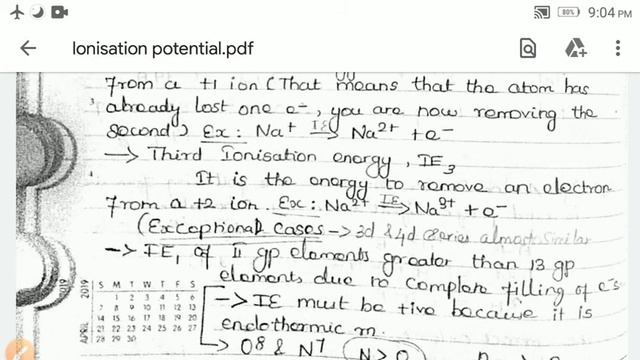 80%
9:04 PM
Ionisation potential.pdf
From a +1 ion (That means that the atom has
already lost one e-, you are now removing the
second) Ex: Na+ IE Na2+ + e-
→ Third Ionisation energy, IE3
It is the energy to remove an electron
From a +2 ion. Ex: Na2+ IE Na3+ + e-
(Exceptional Cases → 3d & 4d series almost similar
→ IE1 of II gp elements greater than 13 gp
elements due to complete filling of e-s
→ IE must be +ive because it is
endothermic
→ O8 & N7 N > O
2019
APRIL 2019
S M T W T F S
1 2 3 4 5 6
7 8 9 10 11 12 13
14 15 16 17 18 19 20
21 22 23 24 25 26 27
28 29 30